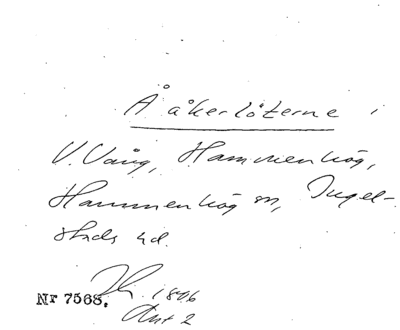 Å åkerlöterne i
V. Vång, Hammenhög,
Hammenhög sn, Ingel-
stads hd.
1846
Nr 7568.
Akt 2